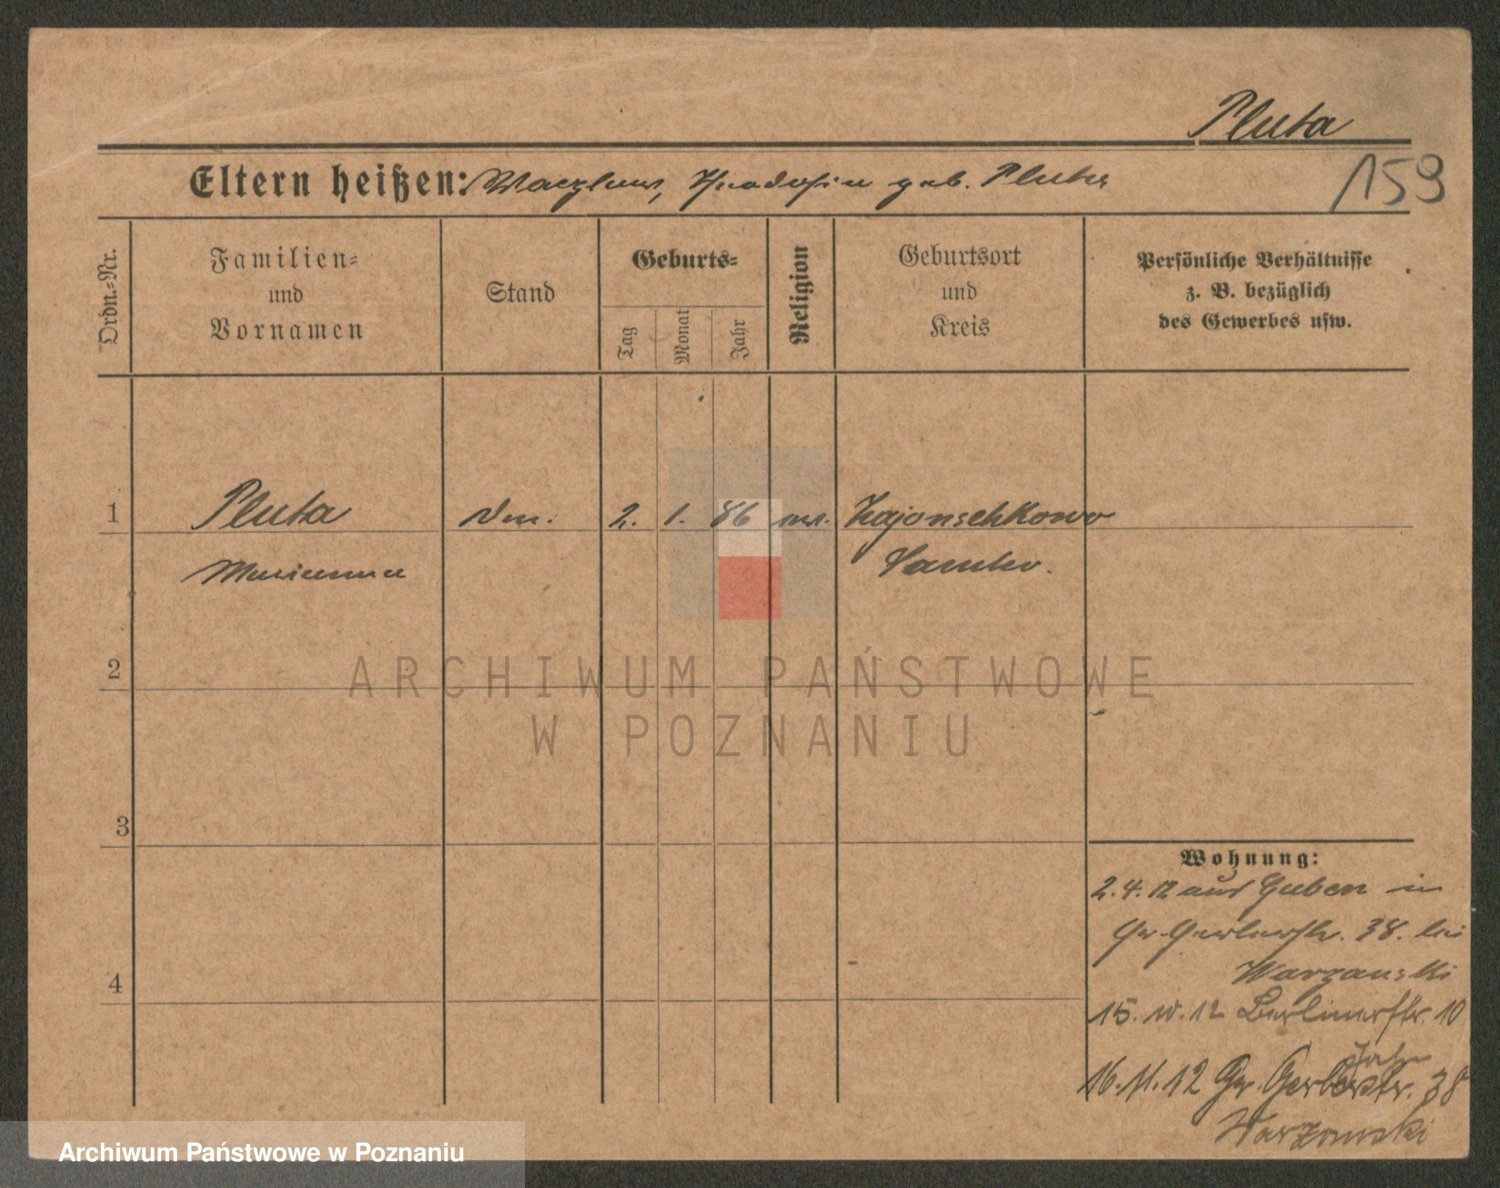 Pluta
159
Eltern heißen: geb. Pluta
Ordn.-Nr.
Familien-
und
Vornamen
Stand
Geburts-
Tag
Monat
Jahr
Religion
Geburtsort
und
Kreis
Persönliche Verhältnisse
z. B. bezüglich
des Gewerbes usw.
1
Pluta
2. 1. 86
Marianna
2
3
4
ARCHIWUM PAŃSTWOWE
W POZNANIU
Wohnung:
2.4.12 aus Guben in
38. bei
Warzanski
15. 12 Berlinerstr. 10
16.11.12 Gr. Gerberstr. 38
Warzanski
Archiwum Państwowe w Poznaniu